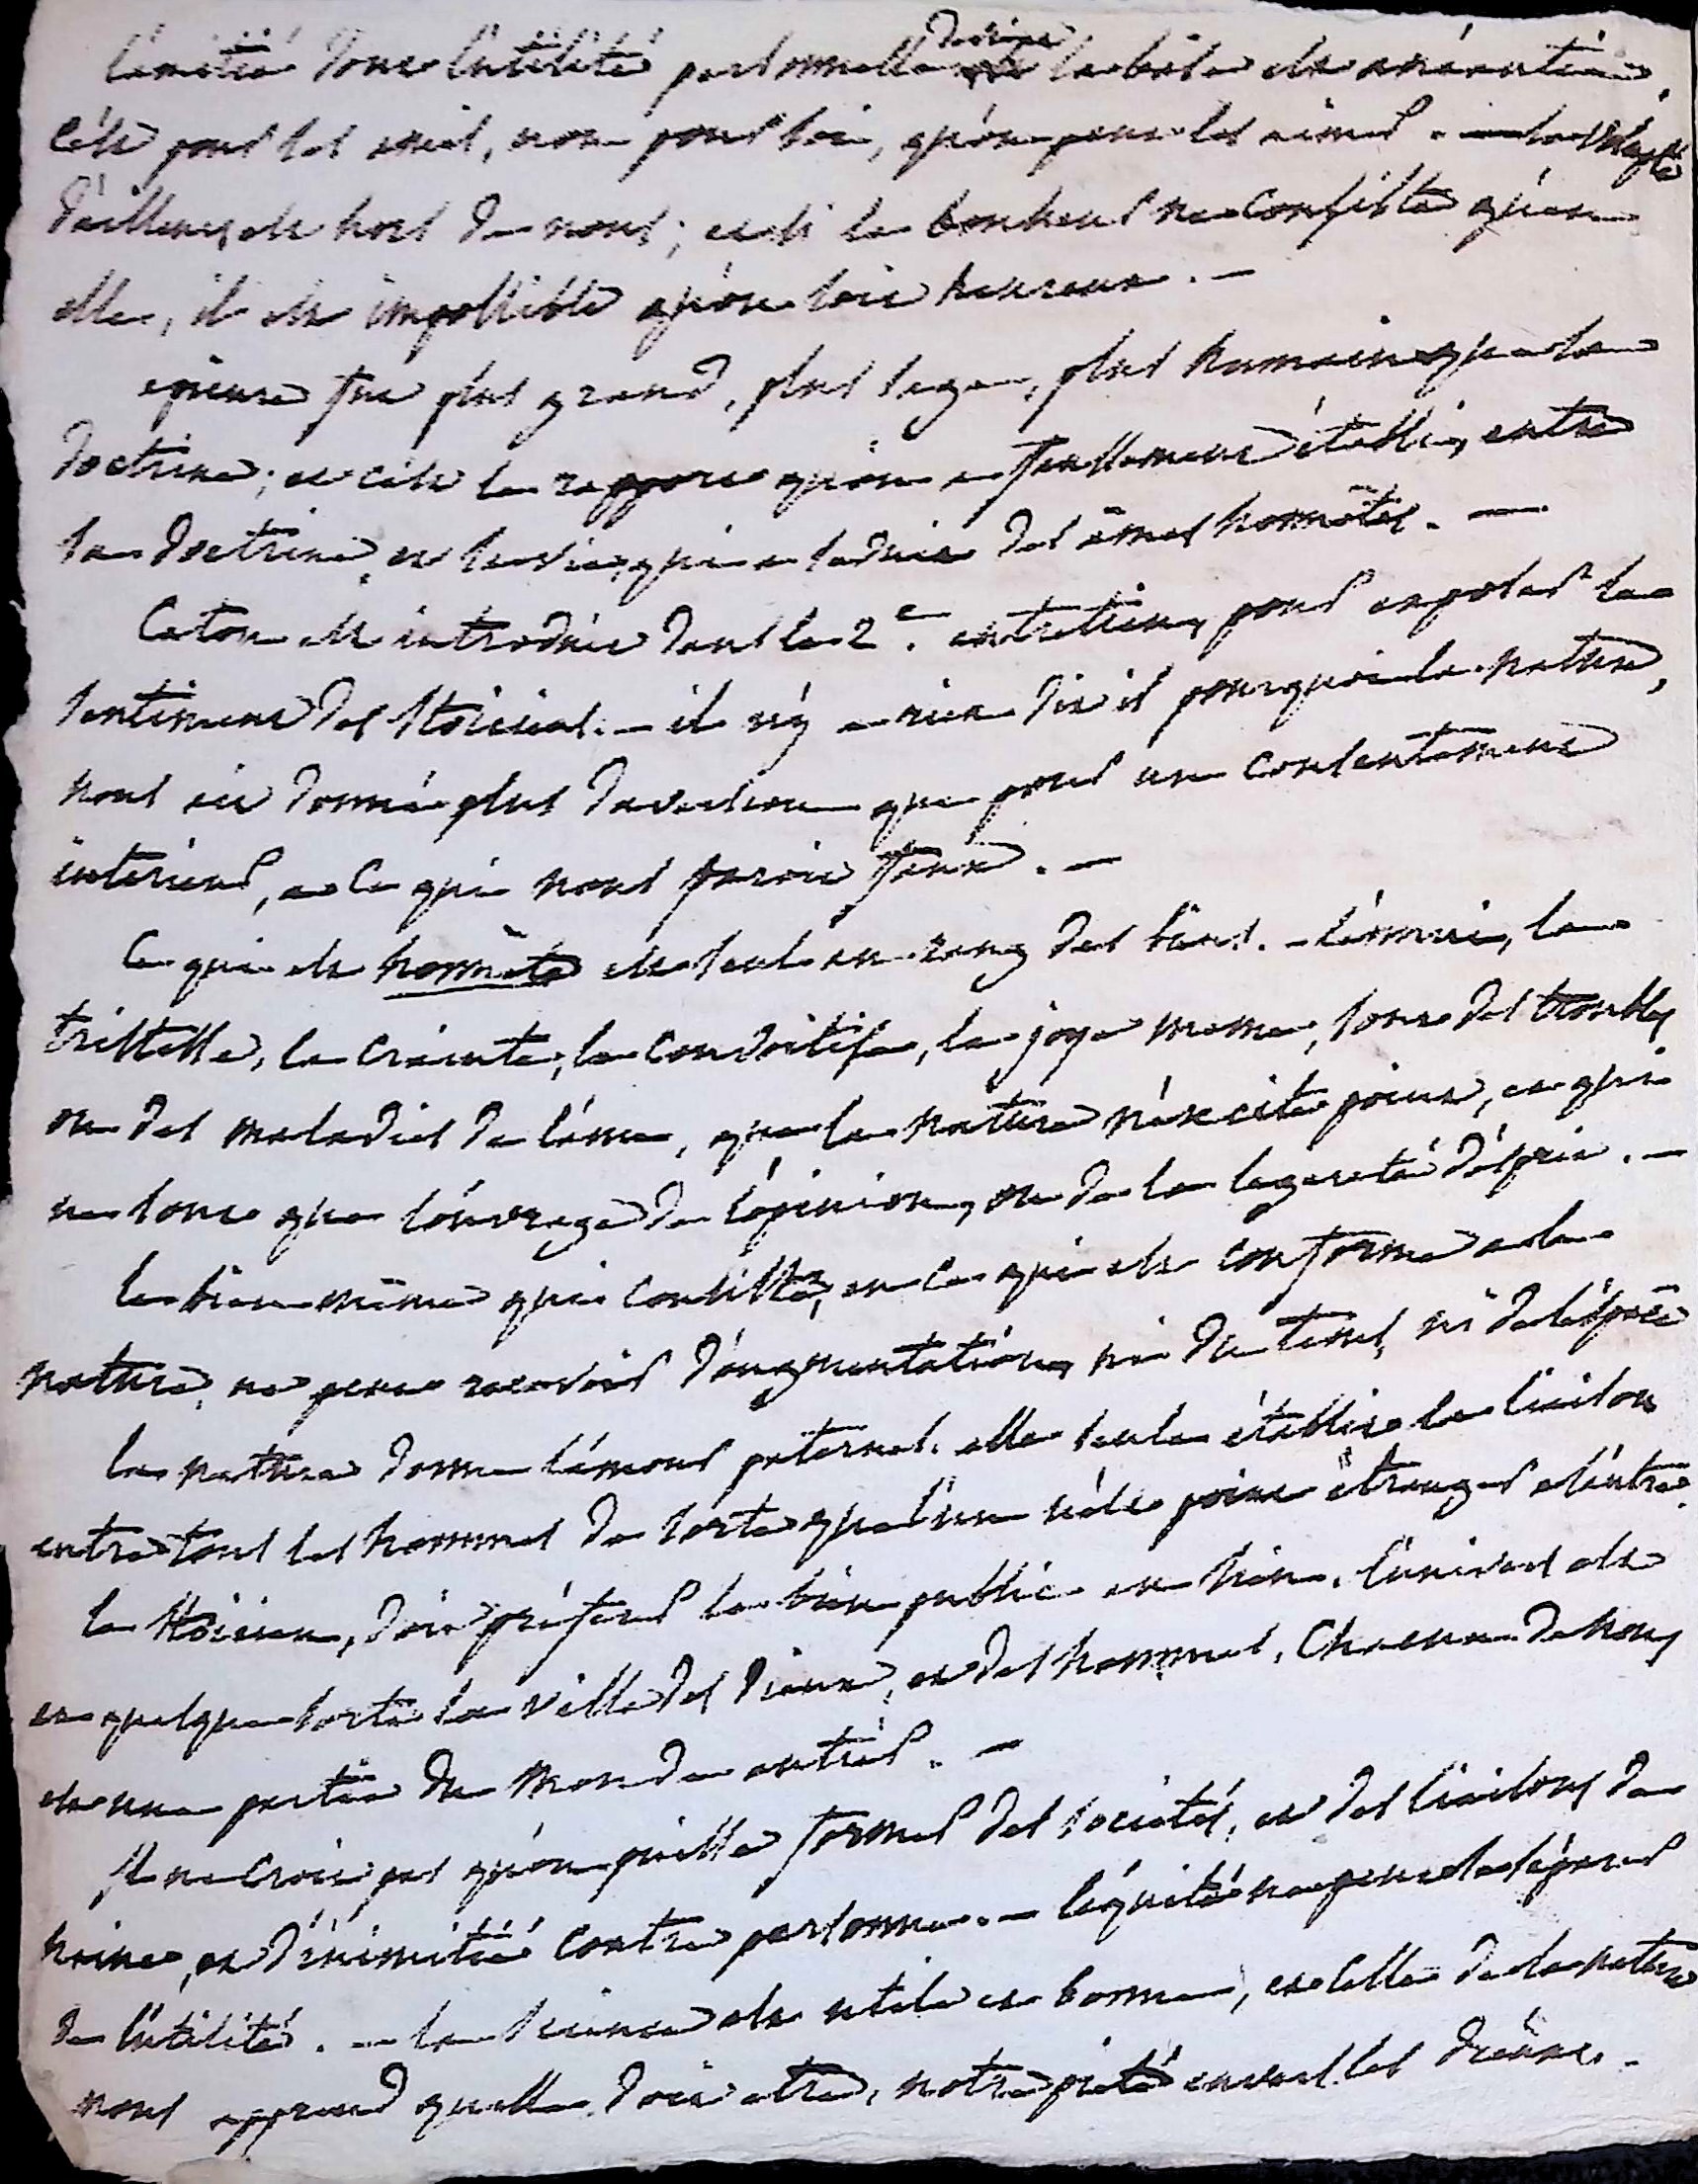 l'amitié dont l'utilité personnelle devient la base est anéantie.
c'est pour ses amis, non pour soi, qu'on peut les aimer. — la volupté
d'ailleurs est hors de nous; et si le bonheur ne consiste qu'en
elle, il est impossible qu'on soit heureux. —
epicure fut plus grand, plus sage, plus humain que sa
doctrine; et c'est le rapport qu'on a faussement établi, entre
sa doctrine, et sa vie, qui a séduit des ames honnêtes. —
Caton est introduit dans le 2e. entretien, pour exposer le
sentiment des stoiciens. — il n'y a rien dit il pourquoi la nature,
nous ait donné plus d'aversion que pour un consentement
interieur, a ce qui nous paroit faux. —
Ce qui est honnête est seul au rang des biens. — l'ennui, la
tristesse, la crainte, la convoitise, la joye meme, sont des troubles
ou des maladies de l'ame, que la nature n'excite point, et qui
ne sont que l'ouvrage de l'opinion, ou de la legereté d'esprit. —
le bien même qui consiste, en ce qui est conforme a la
nature, ne peut recevoir d'augmentation, ni du tems, ni de l'espace
la nature donne l'amour paternel. elle seule établit la liaison
entre tous les hommes de sorte que l'un n'est point étranger a l'autre.
le stoicien, doit préferer le bien public au sien. l'univers est
en quelque sorte la ville des dieux, et des hommes. Chacun de nous
est une partie du monde entier. —
Il ne croit pas qu'on puisse former des societés, et des liaisons de
haine, et d'inimitié contre personne. — l'équité ne peut se séparer
de l'utilité. — la science est utile et bonne, et celle de la nature
nous apprend quelle doit etre, notre piété envers les dieux. —